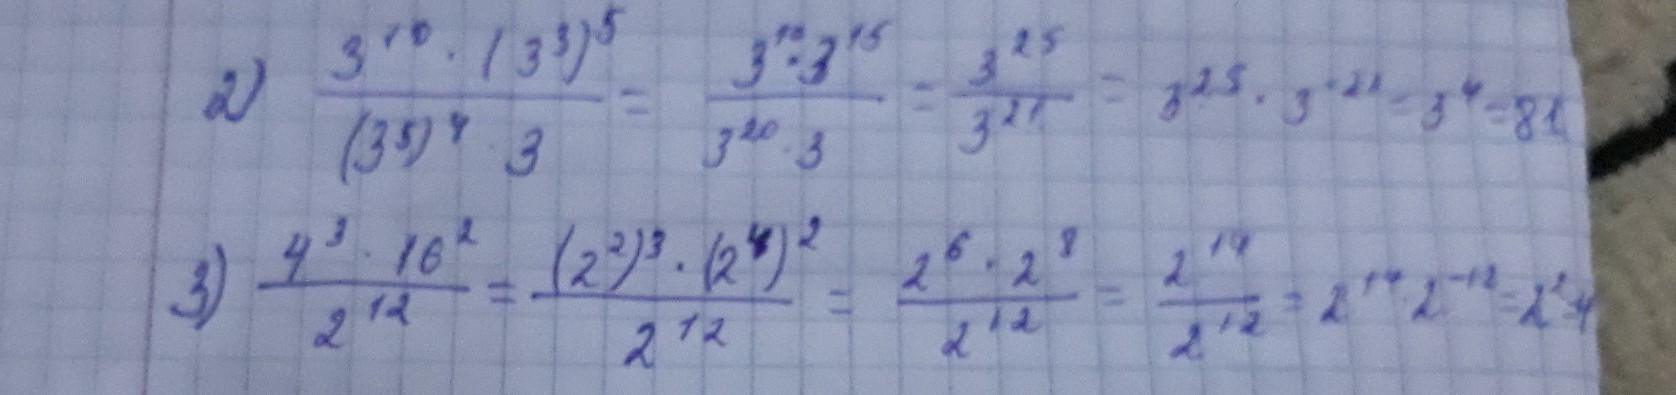 2) (3^10 · (3^3)^5) / ((3^5)^4 · 3) = (3^10 · 3^15) / (3^20 · 3) = 3^25 / 3^21 = 3^25 · 3^-21 = 3^4 = 81
3) (4^3 · 16^2) / 2^12 = ((2^2)^3 · (2^4)^2) / 2^12 = (2^6 · 2^8) / 2^12 = 2^14 / 2^12 = 2^14 · 2^-12 = 2^2 = 4